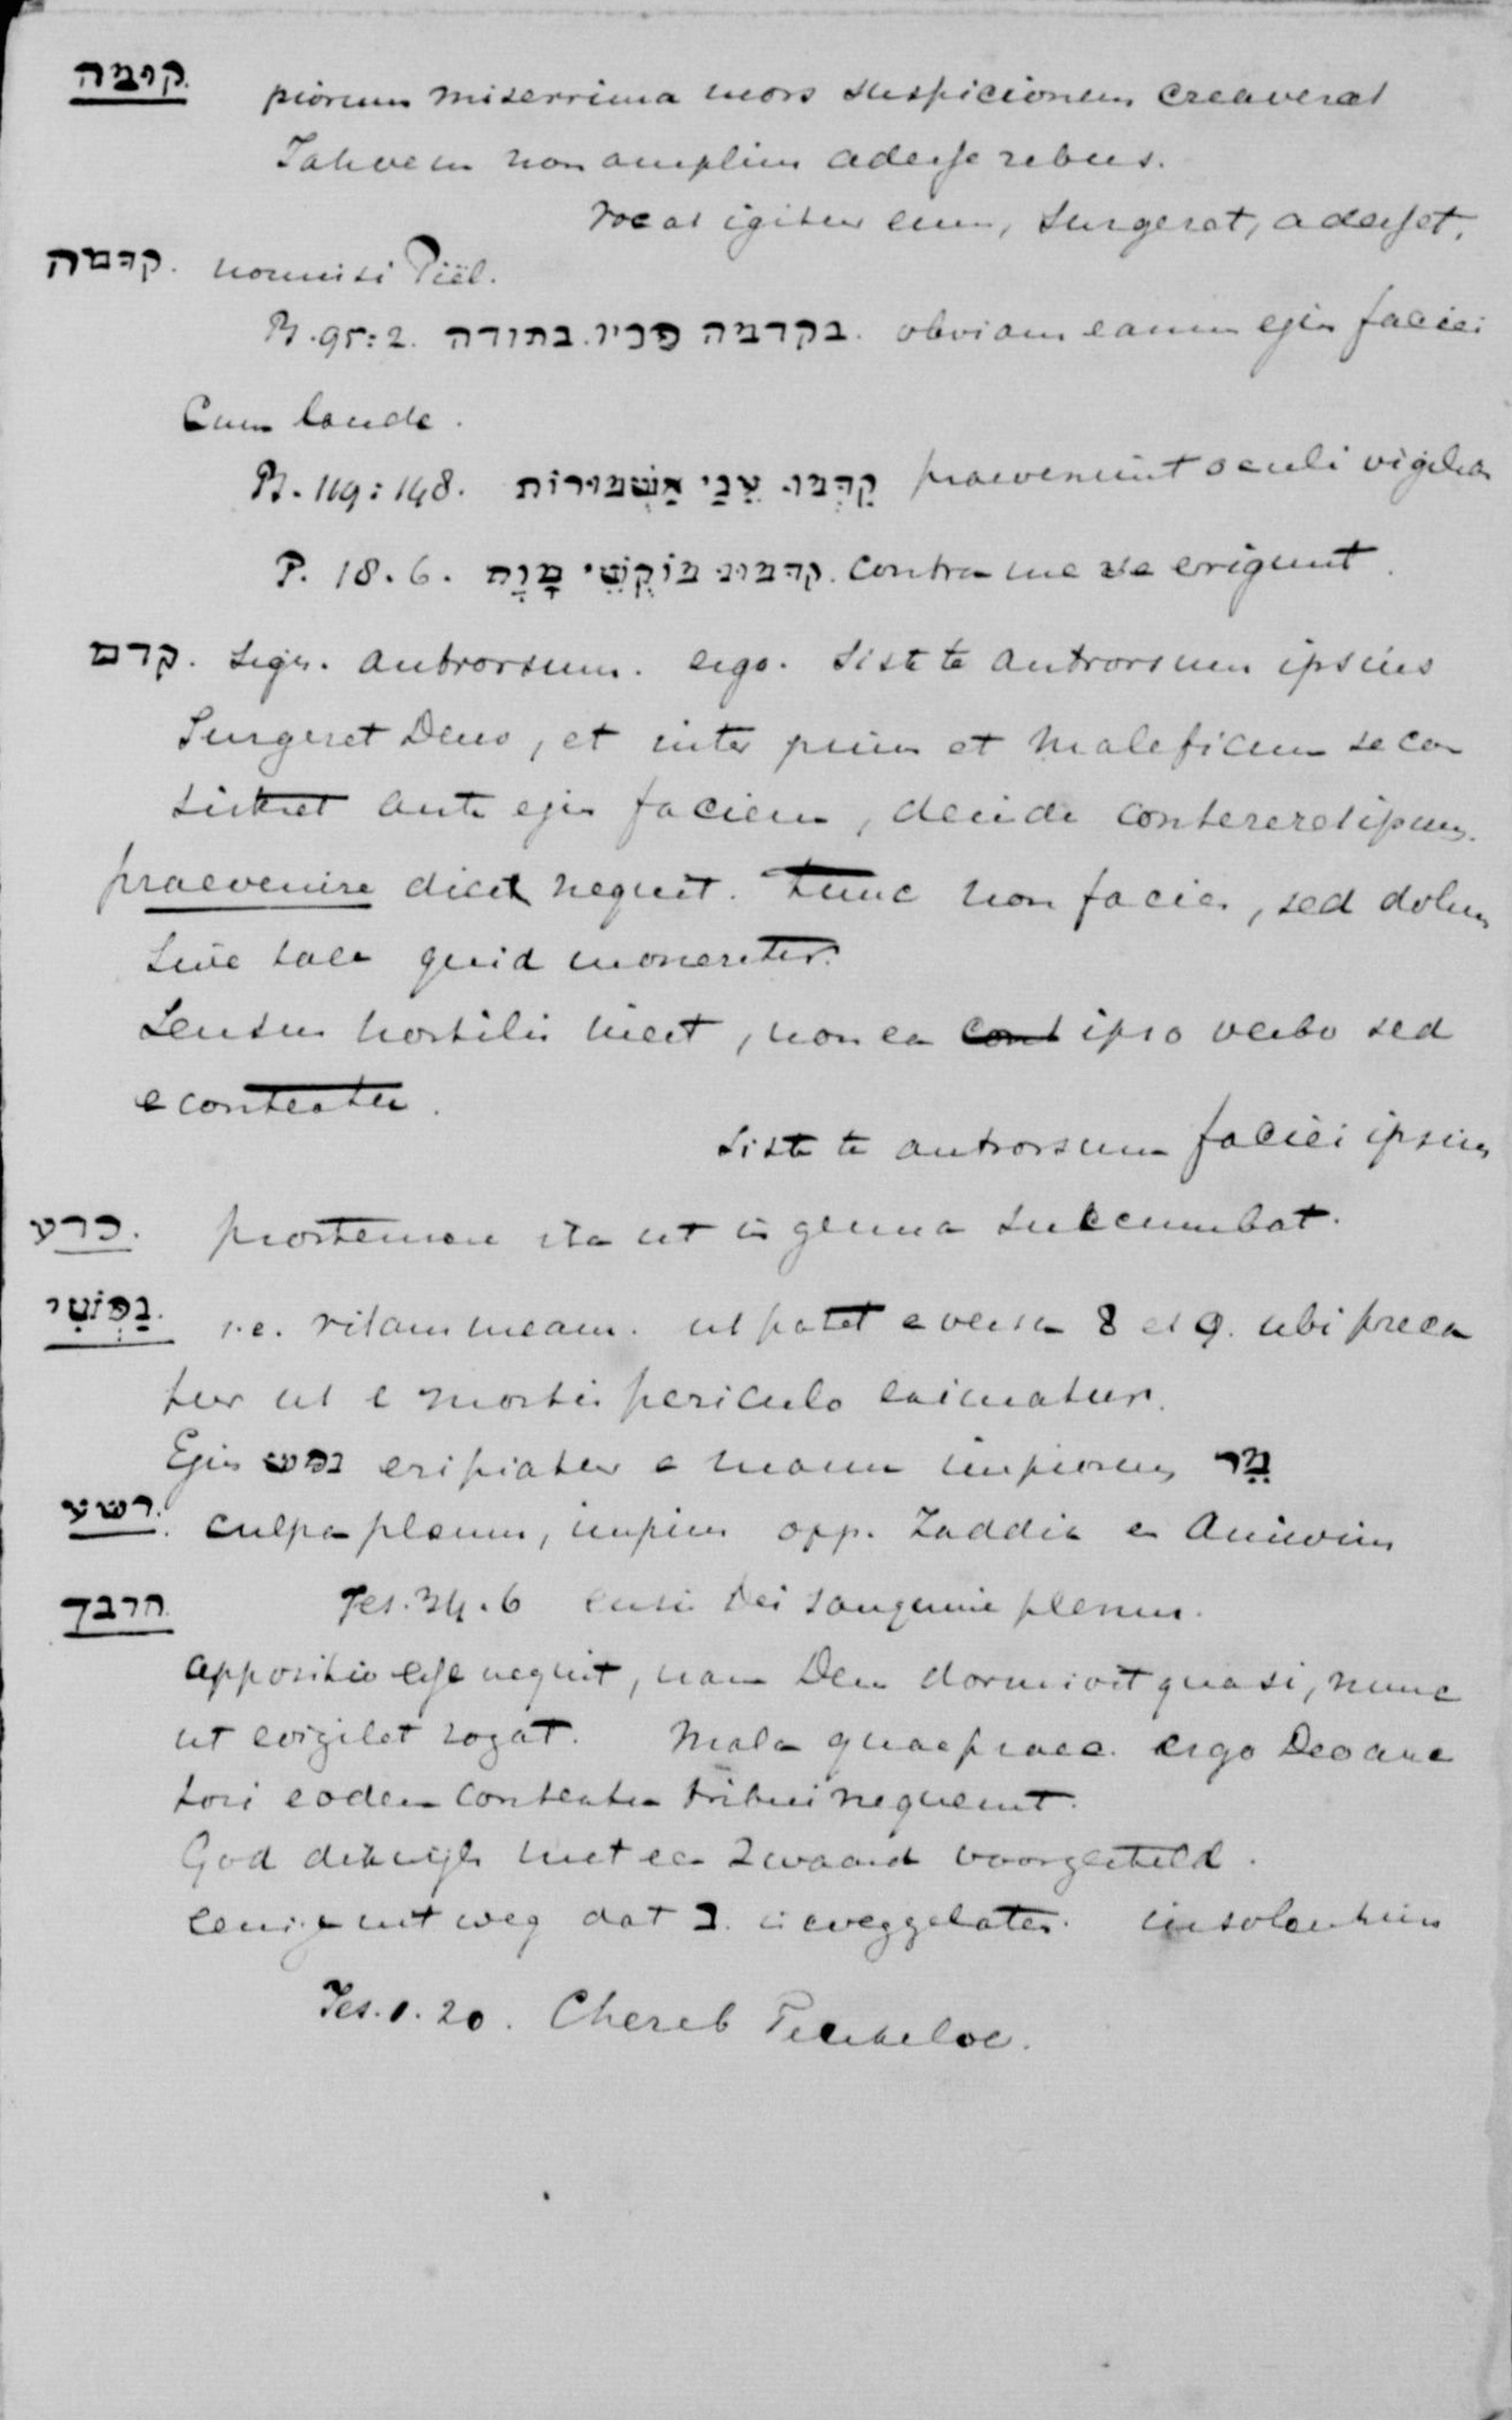 קומה. piorum miserrima mors suspicionem creaverat
Jahvem non amplius adesse rebus.
Vocat igitur eum, surgeret, adesset.
קדמה. nonnisi Piël.
Ps. 95:2. בקדמה פניו בתודה. obviam eamus ejus faciei
Cum laude.
Ps. 119:148. קַדְּמוּ עֵנַי אַשְׁמוּרוֹת praeveniunt oculi vigilias
P. 18.6. קדמוני מוֹקְשֵׁי מָוֶת. contra me se erigunt.
קדם. sign. antrorsum. ergo. siste te antrorsum ipsius
Surgeret Deus, et inter pium et maleficum se con
sisteret ante ejus faciem, deinde contereret ipsum.
praevenire dicit nequit. Tunc non facies, sed dolum
sive tale quid moneretur.
Sensus hostilis inest, non ex cont ipso verbo sed
e contextu.
siste te antrorsum faciei ipsius
כרע. prosternere ita ut in genua succumbat.
נַפְשִׁי. i.e. vitam meam. ut patet e versu 8 et 9. ubi preca
tur ut e mortis periculo eximatur.
Ejus נפש eripiatur e manu impiorum
רשע. culpa plenus, impius opp. Zaddik en Aniwim
חרבך. Jes. 34.6 ensis Dei sanguine plenus.
appositio esse nequit, nam Deus dormivit quasi, nunc
ut evigilet rogat. Mala quae praec. ergo Deo auc
tori eodem contextu tribui nequeunt.
God dikwijls met een zwaard voorgesteld.
eenige uitweg dat ב. is weggelaten.
Jes. 1.20. Chereb